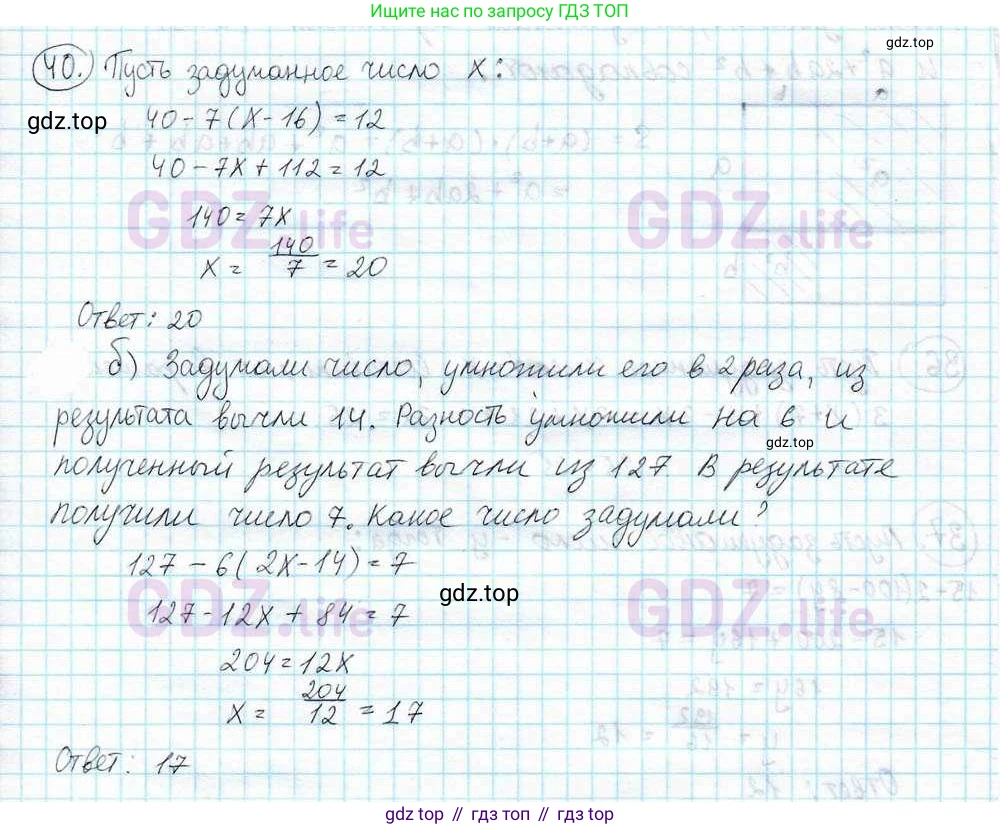 Ищите нас по запросу ГДЗ ТОП
gdz.top
40. Пусть задуманное число x:
gdz.top
40 - 7(x - 16) = 12
40 - 7x + 112 = 12
GDZ.life GDZ.life
140 = 7x
x = 140/7 = 20
Ответ: 20
б) Задумали число, умножили его в 2 раза, из
результата вычли 14. Разность умножили на 6 и
gdz.top
полученный результат вычли из 127. В результате
получили число 7. Какое число задумали?
127 - 6(2x - 14) = 7
gdz.top
127 - 12x + 84 = 7
GDZ.life GDZ.life
204 = 12x
x = 204/12 = 17
Ответ: 17
gdz top // гдз топ // gdz.top // гдз топ